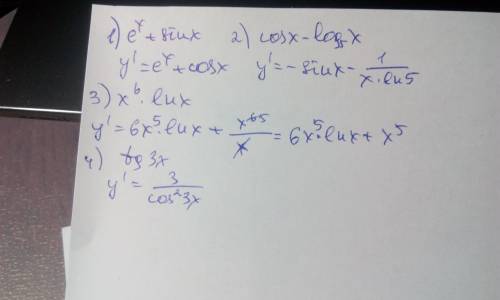 1) eˣ + sinx 2) cosx - log₅x
y' = eˣ + cosx y' = -sinx - 1/(x·ln5)
3) x⁶·lnx
y' = 6x⁵·lnx + x⁶⁵/x = 6x⁵·lnx + x⁵
4) tg 3x
y' = 3/(cos²3x)